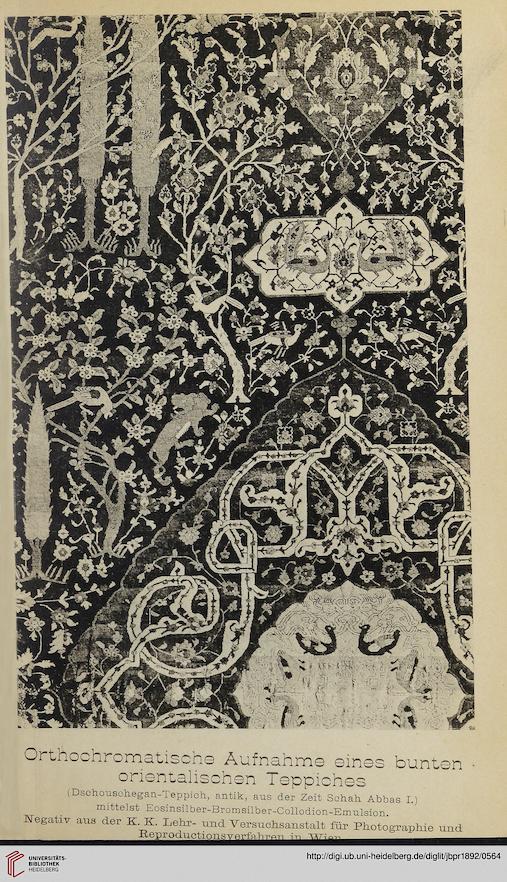 Orthochromatische Aufnahme eines bunten
orientalischen Teppiches
(Dschouschegan-Teppich, antik, aus der Zeit Schah Abbas I.)
mittelst Eosinsilber-Bromsilber-Collodion-Emulsion.
Negativ aus der K. K. Lehr- und Versuchsanstalt für Photographie und
Reproductionsverfahren in Wien
UNIVERSITÄTS-
BIBLIOTHEK
HEIDELBERG
http://digi.ub.uni-heidelberg.de/diglit/jbpr1892/0564